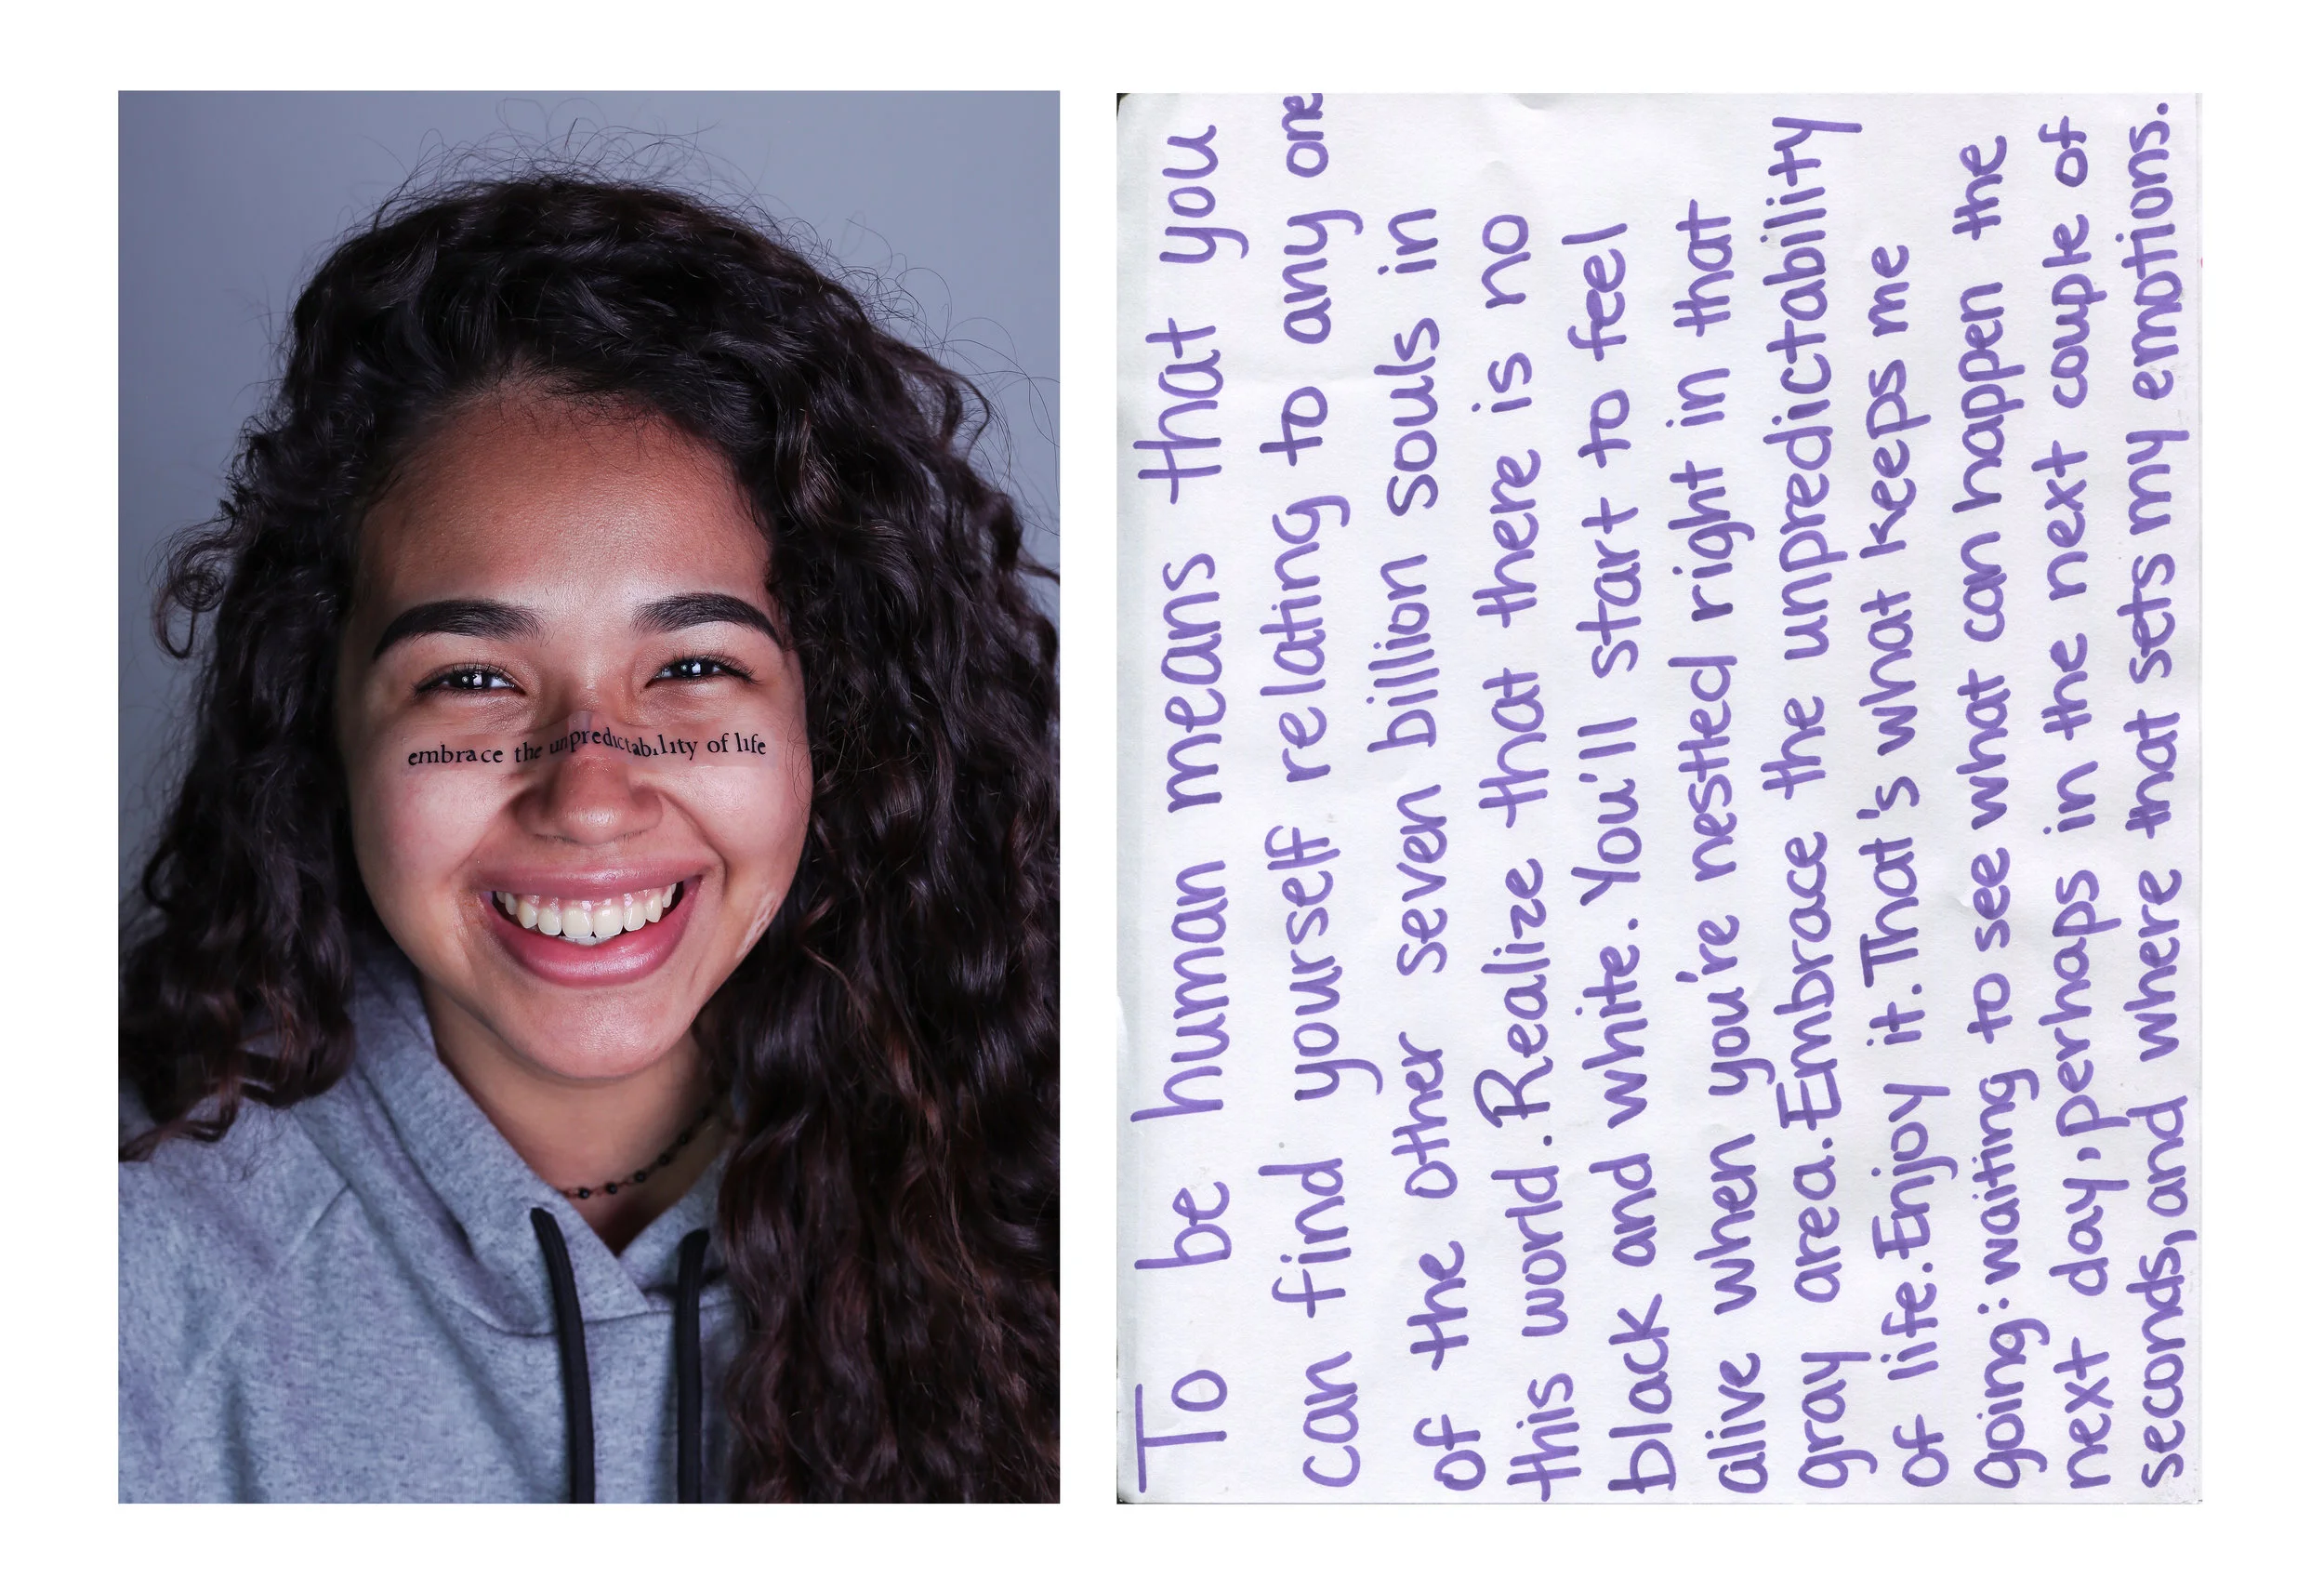 embrace the unpredictability of life
To be human means that you
can find yourself relating to any one
of the other seven billion souls in
this world. Realize that there is no
black and white. You'll start to feel
alive when you're nestled right in that
gray area. Embrace the unpredictability
of life. Enjoy it. That's what keeps me
going: waiting to see what can happen the
next day, perhaps in the next couple of
seconds, and where that sets my emotions.